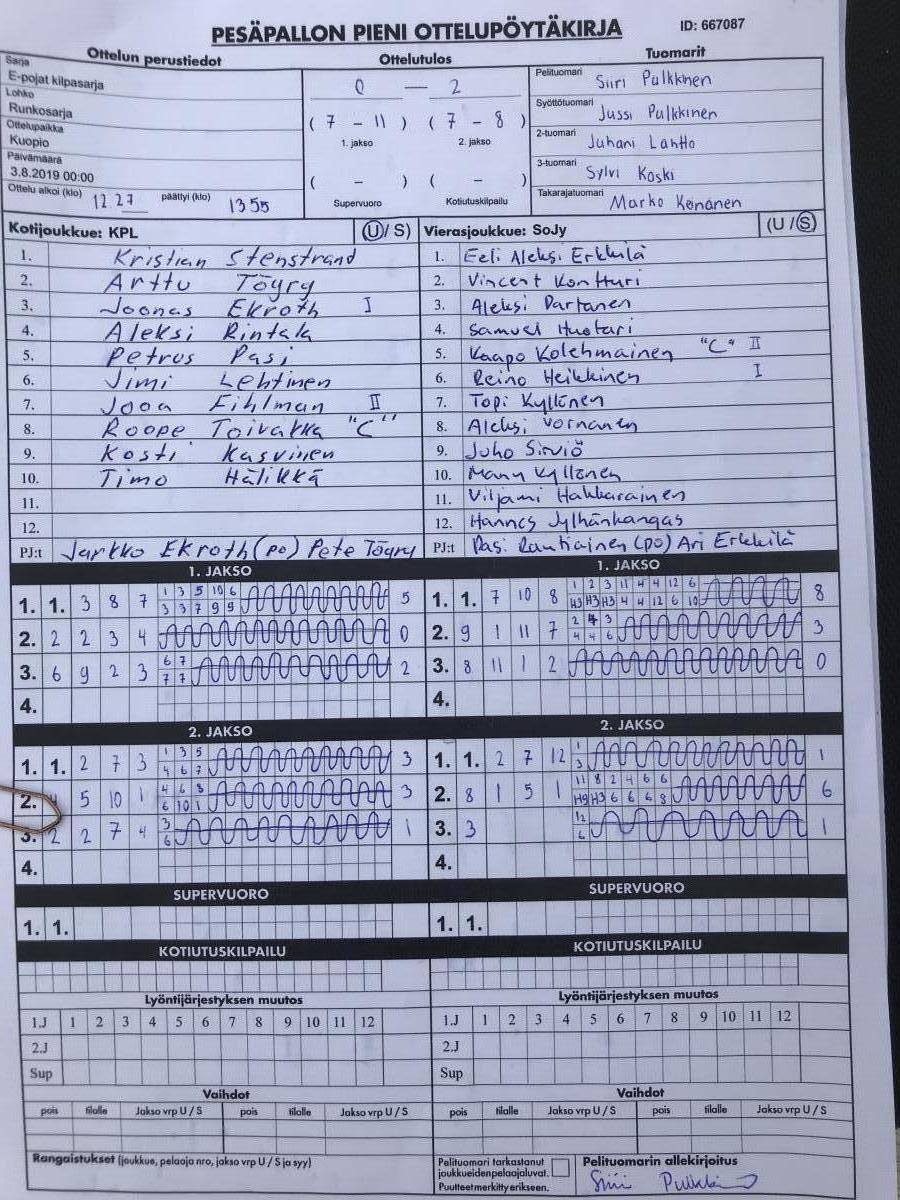 PESÄPALLON PIENI OTTELUPÖYTÄKIRJA ID: 667087
Ottelun perustiedot Ottelutulos Tuomarit
Sarja
E-pojat kilpasarja
Lohko
Runkosarja
Ottelupaikka
Kuopio
Päivämäärä
3.8.2019 00:00
Ottelu alkoi (klo) 12 27 päättyi (klo) 13 55
0 — 2
( 7 - 11 ) ( 7 - 8 )
1. jakso 2. jakso
( - ) ( - )
Supervuoro Kotiutuskilpailu
Pelituomari Siiri Pulkkinen
Syöttötuomari Jussi Pulkkinen
2-tuomari Juhani Lahtto
3-tuomari Sylvi Koski
Takarajatuomari Marko Kenanen
Kotijoukkue: KPL (U/ S) Vierasjoukkue: SoJy (U /S)
1. Kristian Stenstrand 1. Eeli Aleksi Erkkilä
2. Arttu Töyry 2. Vincent Kontturi
3. Joonas Ekroth I 3. Aleksi Partanen
4. Aleksi Rintala 4. Samuel Huotari
5. Petrus Pasi 5. Kaapo Kolehmainen "C" II
6. Jimi Lehtinen 6. Reino Heikkinen I
7. Jooa Fihlman II 7. Topi Kyllönen
8. Roope Toivakka "C" 8. Aleksi Vornanen
9. Kosti Kasvinen 9. Juho Sirviö
10. Timo Hälikkä 10. Manu Kyllönen
11. 11. Viljami Hakkarainen
12. 12. Hannes Jylhänkangas
PJ:t Jarkko Ekroth (po) Pete Töyry PJ:t Pasi Rautiainen (po) Ari Erkkilä
1. JAKSO 1. JAKSO
1. 1. 3 8 7 1 3 5 10 6 5 1. 1. 7 10 8 1 2 3 11 4 4 12 6 8
3 3 7 9 9 H3 H3 H3 4 4 12 6 10
2. 2 2 3 4 0 2. 9 1 11 7 2 4 3 3
4 4 6
3. 6 9 2 3 6 7 2 3. 8 11 1 2 0
7 7
4. 4.
2. JAKSO 2. JAKSO
1. 1. 2 7 3 1 3 5 3 1. 1. 2 7 12 1 1
4 6 7 3
2. 5 10 1 4 6 8 3 2. 8 1 5 1 11 8 2 4 6 6 6
6 10 1 H9 H3 6 6 6 8
3. 2 2 7 4 3 1 3. 3 12 1
6 6
4. 4.
SUPERVUORO SUPERVUORO
1. 1. 1. 1.
KOTIUTUSKILPAILU KOTIUTUSKILPAILU
Lyöntijärjestyksen muutos Lyöntijärjestyksen muutos
1.J 1 2 3 4 5 6 7 8 9 10 11 12 1.J 1 2 3 4 5 6 7 8 9 10 11 12
2.J 2.J
Sup Sup
Vaihdot Vaihdot
pois tilalle Jakso vrp U / S pois tilalle Jakso vrp U / S pois tilalle Jakso vrp U / S pois tilalle Jakso vrp U / S
Rangaistukset (joukkue, pelaaja nro, jakso vrp U / S ja syy)
Pelituomari tarkastanut
joukkueidenpelaajaluvat.
Puutteetmerkittyerikseen.
Pelituomarin allekirjoitus
Siiri Pulkkinen